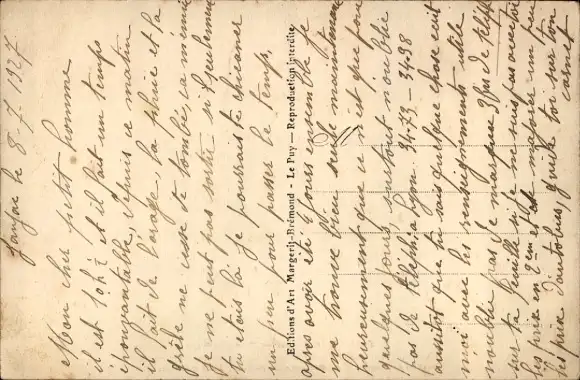 Jaujac le 8/7/1927
Mon cher petit homme
il est 10h ½ et il fait un temps
épouvantable, depuis ce matin
il fait de l'orage, la pluie et la
grêle ne cesse de tombé, ca m'ennuie
je ne peut pas sortir si seulement
tu étais là je pourrais te chicaner
un peu pour passer le temps,
Editions d'Art Margerit-Brémond - Le Puy — Reproduction interdite
apres avoir été 2 jours ensemble je
me trouve bien seule maintenant
heureusement que ce n'est que pour
quelques jours surtout n'oublie
pas de téléph, a Lyon. 34-33 - 34-38
aussitot que tu sais quelque chose écrit
moi avec les renseignements utile
n'oublie pas je marque
sur ta feuille si je ne suis pas
les prix en 2em et
les prix d'autobus, guide toi sur ton
carnet